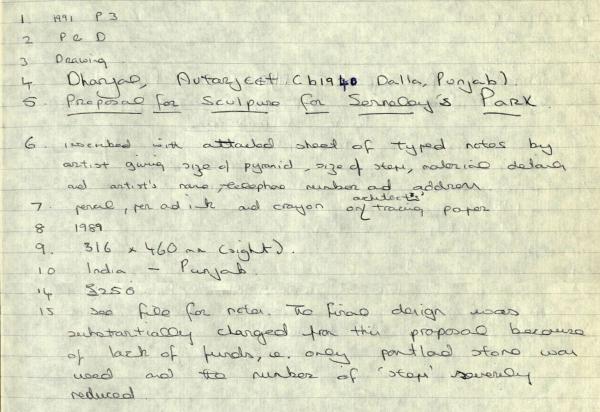 1 1991 P 3
2 P & D
3 Drawing
4 Dhanjal, Avtarjeet (b1940 Dalla, Punjab).
5. Proposal for Sculpure for Serneley's Park
6. inscribed with attached sheet of typed notes by
artist giving size of pyramid, size of steps, material details
and artist's name, telephone number and address
7 pencil, pen and ink and crayon on architects' tracing paper
8 1989
9. 316 x 460 mm (sight).
10 India - Punjab.
14 £250
15 see file for notes. The final design was
substantially changed from this proposal because
of lack of funds, i.e. only portlad stone was
used and the number of 'steps' severely
reduced.